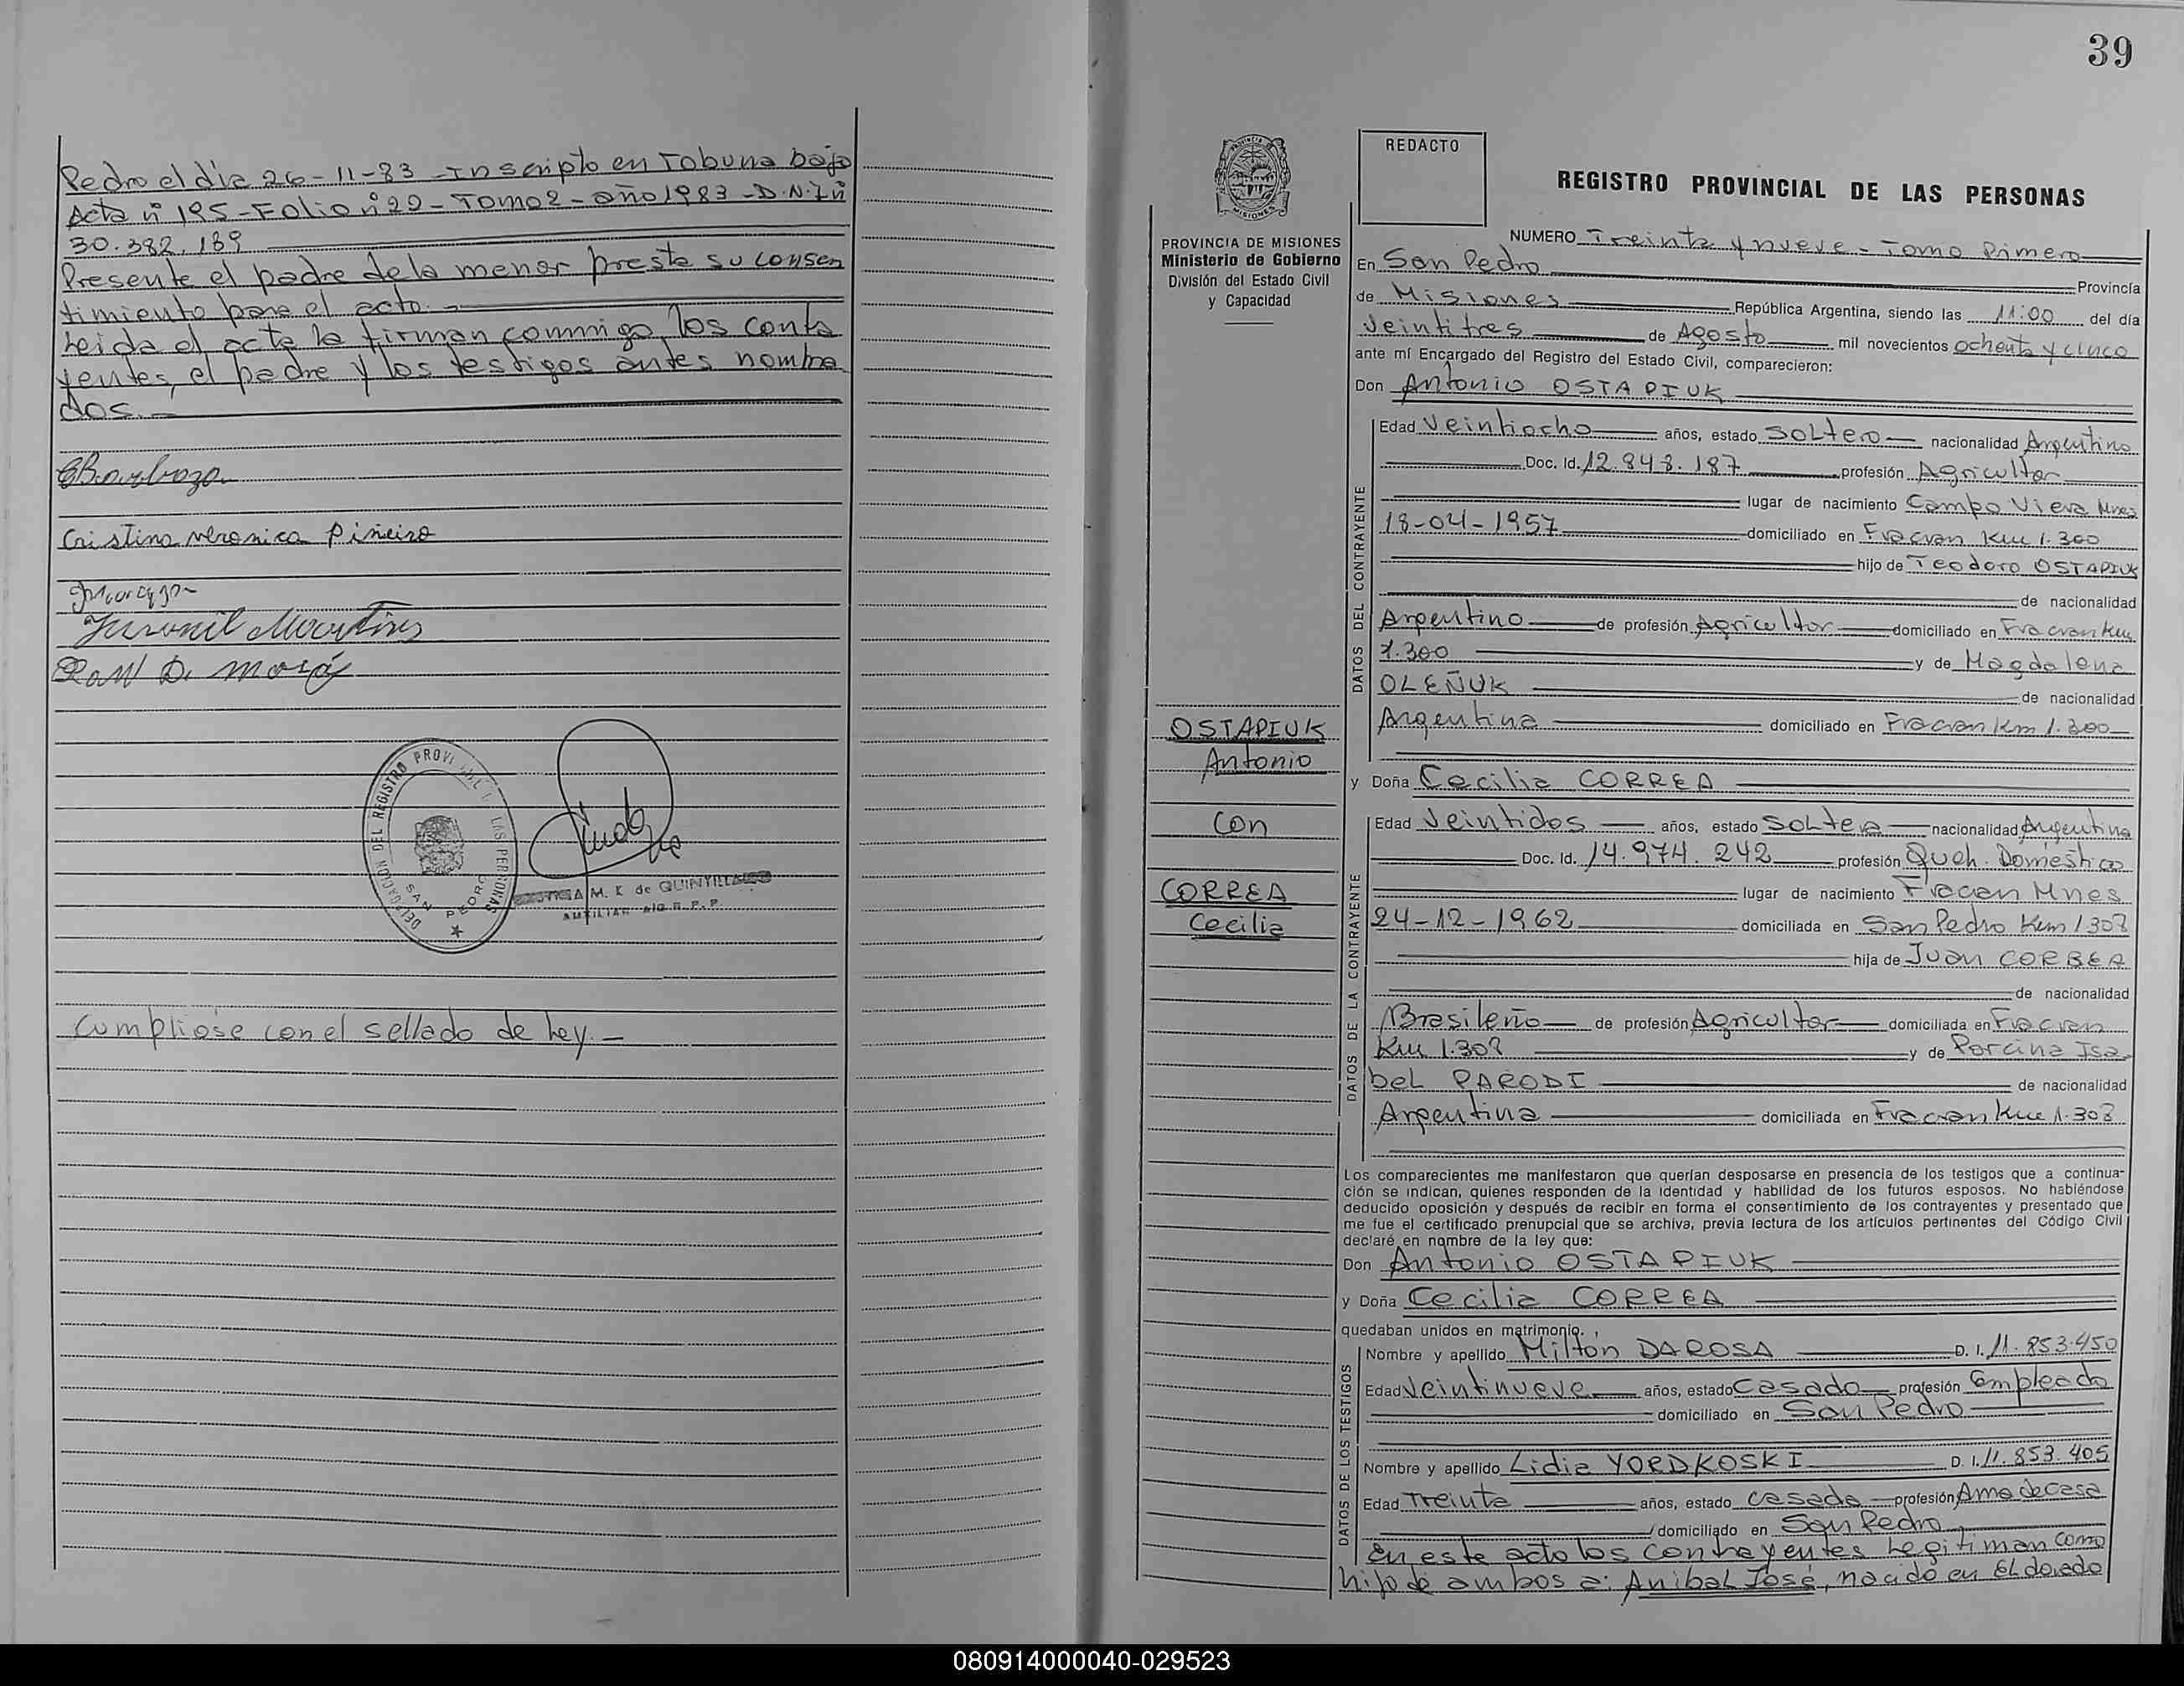 Pedro el día 26-11-83 - Inscripto en Tobuna bajo
Acta nº 195 - Folio nº 20 - Tomo 2 - año 1983 - D.N.I nº
30.382.139
Presente el padre de la menor presta su consen
timiento para el acto. -
Leida el acta la firman conmigo, los contra
yentes, el padre y los testigos antes nombra
dos. -
Cristina Veronica Piñeiro
DELEGACION DEL REGISTRO PROVINCIAL LAS PERSONAS
SAN PEDRO
M. K. de QUINTILLAN
AUXILIAR a/c R. P. P.
Cumpliose con el sellado de Ley. -
39
PROVINCIA DE MISIONES
Ministerio de Gobierno
División del Estado Civil
y Capacidad
OSTAPIUK
Antonio
con
CORREA
Cecilia
REDACTO
REGISTRO PROVINCIAL DE LAS PERSONAS
NUMERO Treinta y nueve - Tomo Primero
En San Pedro Provincia
de Misiones República Argentina, siendo las 11:00 del día
Veintitres de Agosto mil novecientos ochenta y cinco
ante mí Encargado del Registro del Estado Civil, comparecieron:
Don Antonio OSTAPIUK
DATOS DEL CONTRAYENTE
Edad Veintiocho años, estado Soltero nacionalidad Argentino
Doc. Id. 12.848.187 profesión Agricultor
lugar de nacimiento Campo Viera Mnes
18-04-1957 domiciliado en Fracran Km 1.300
hijo de Teodoro OSTAPIUK
de nacionalidad
Argentino de profesión Agricultor domiciliado en Fracran Km
1.300 y de Magdalena
OLEÑUK de nacionalidad
Argentina domiciliado en Fracran Km 1.300
y Doña Cecilia CORREA
DATOS DE LA CONTRAYENTE
Edad Veintidos años, estado Soltera nacionalidad Argentina
Doc. Id. 14.974.242 profesión Queh. Domesticos
lugar de nacimiento Fracran Mnes
24-12-1962 domiciliada en San Pedro Km 1308
hija de Juan CORREA
de nacionalidad
Brasileño de profesión Agricultor domiciliada en Fracran
Km 1.308 y de Porcina Isa
bel PARODI de nacionalidad
Argentina domiciliada en Fracran Km 1.308
Los comparecientes me manifestaron que querían desposarse en presencia de los testigos que a continua-
ción se indican, quienes responden de la identidad y habilidad de los futuros esposos. No habiéndose
deducido oposición y después de recibir en forma el consentimiento de los contrayentes y presentado que
me fue el certificado prenupcial que se archiva, previa lectura de los artículos pertinentes del Código Civil
declaré en nombre de la ley que:
Don Antonio OSTAPIUK
y Doña Cecilia CORREA
quedaban unidos en matrimonio.
DATOS DE LOS TESTIGOS
Nombre y apellido Milton DAROSA D. I. 11.853.450
Edad Veintinueve años, estado Casado profesión Empleado
domiciliado en San Pedro
Nombre y apellido Lidia YORDKOSKI D. I. 11.853.405
Edad Treinta años, estado casada profesión Ama de Casa
domiciliado en San Pedro
En este acto los contrayentes Legitiman como
hijo de ambos a: Anibal José, nacido en Eldorado
080914000040-029523